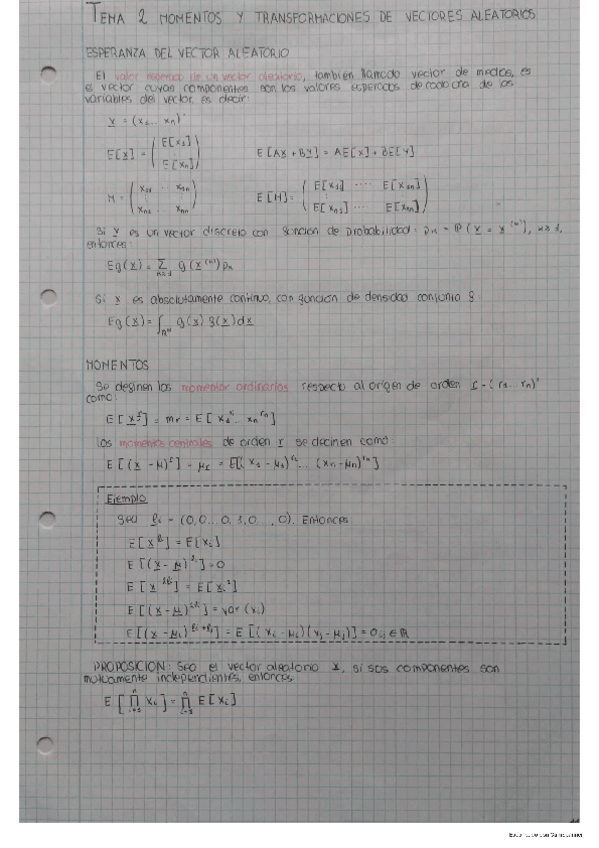 TEMA 2 MOMENTOS Y TRANSFORMACIONES DE VECTORES ALEATORIOS
ESPERANZA DEL VECTOR ALEATORIO
El valor esperado de un vector aleatorio, también llamado vector de medias, es
el vector cuyas componentes son los valores esperados de cada una de las
variables del vector, es decir:
X = (X₁... Xn)'
E[X] = (E[X₁] ⋮ E[Xn]) E[AX + BY] = AE[X] + BE[Y]
M = (X₁₁ ... X₁n ⋮ Xn₁ ... Xnn) E[M] = (E[X₁] .... E[X₁n] E[Xn₁] ... E[Xnn])
Si X es un vector discreto con función de probabilidad: pn = P(X = x⁽ⁿ⁾), n≥1,
entonces:
Eg(X) = Σ n≥1 g(x⁽ⁿ⁾)pn
Si X es absolutamente continuo, con función de densidad conjunta f:
Eg(X) = ∫ℝⁿ g(x) f(x)dx
MOMENTOS
Se definen los momentos ordinarios respecto al origen de orden r = (r₁... rn)'
como:
E[Xʳ] = mr = E[X₁ʳ... Xnʳⁿ]
Los momentos centrales de orden r se definen como:
E[(X - μ)ʳ] = μr = E[(X₁ - μ₁)ʳ¹... (Xn - μn)ʳⁿ]
Ejemplo
Sea ei = (0,0...0,1,0...,0). Entonces
E[X^ei] = E[Xi]
E[(X - μ)^ei] = 0
E[X^2ei] = E[Xi²]
E[(X - μ)^2ei] = Var(Xi)
E[(X - μi)^ei+ej] = E[(Xi - μi)(Xj - μj)] = σij ∈ ℝ
PROPOSICIÓN: Sea el vector aleatorio X, si sus componentes son
mutuamente independientes, entonces:
E[∏ i=1 n Xi] = ∏ i=1 n E[Xi]